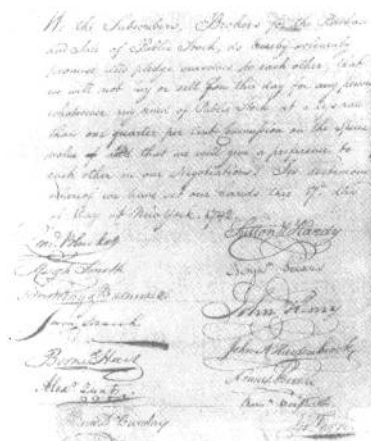 We the Subscribers, Brokers for the Purchase
and Sale of Public Stock, do hereby solemnly
promise and pledge ourselves to each other, that
we will not buy or sell from this day for any person
whatsoever any kind of Public Stock at a less rate
than one quarter per Cent Commission on the Specie
value of and that we will give a preference to
each other in our Negotiations. In testimony
whereof we have set our hands this 17th day
of May at New York. 1792
Leond. Bleecker
Hugh Smith
Armstrong & Barnewall
Samuel March
Bernard Hart
Alexr. Zuntz
Sutton & Hardy
Benjn. Seixas
John Henry
John A Hardenbrook